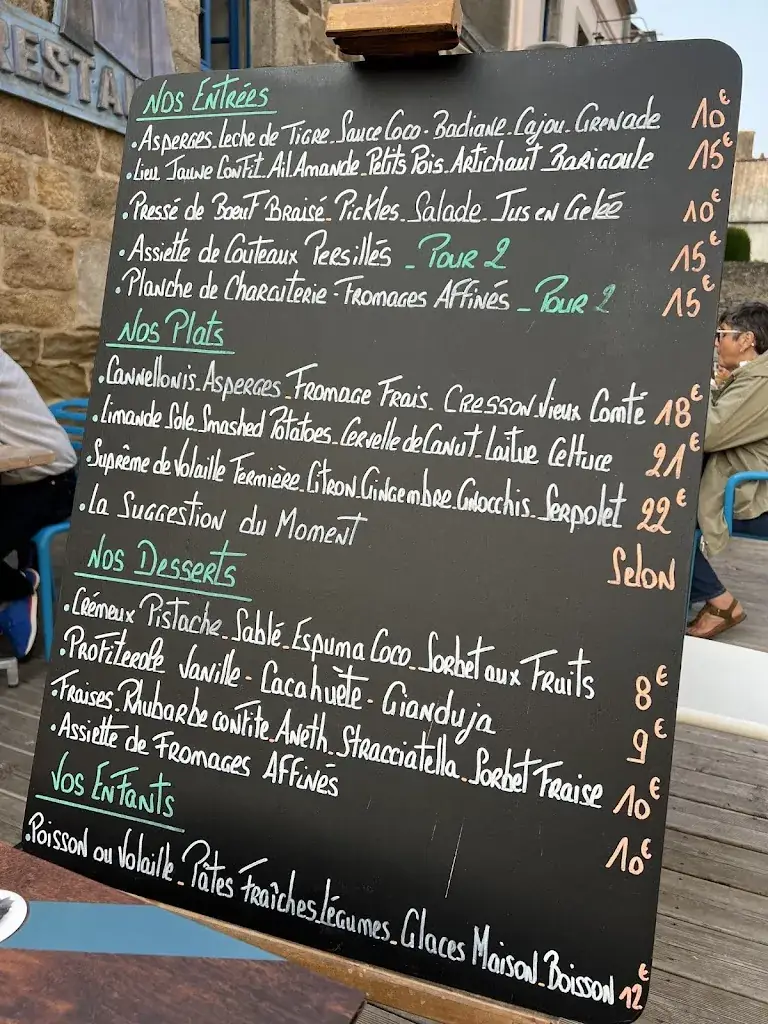 RESTA
Nos Entrées
• Asperges_Leche de Tigre_Sauce Coco - Badiane_Cajou_Grenade 10€
• Lieu Jaune Confit_Ail Amande_Petits Pois_Artichaut Barigoule 15€
• Pressé de Boeuf Braisé_Pickles_Salade_Jus en Gelée 10€
• Assiette de Couteaux Persillés _ Pour 2 15€
• Planche de Charcuterie - Fromages Affinés _ Pour 2 15€
Nos Plats
• Cannellonis_Asperges_Fromage Frais_Cresson_Vieux Comté 18€
• Limande Sole_Smashed Potatoes_Cervelle de Canut_Laitue Celtuce 21€
• Suprême de Volaille Fermière_Citron Gingembre_Gnocchis_Serpolet 22€
• La Suggestion du Moment Selon
Nos Desserts
• Crémeux Pistache_Sablé_Espuma Coco_Sorbet aux Fruits 8€
• Profiterole Vanille - Cacahuète - Gianduja 9€
• Fraises_Rhubarbe confite_Aneth_Stracciatella_Sorbet Fraise 10€
• Assiette de Fromages Affinés 10€
Vos Enfants
• Poisson ou Volaille_Pâtes Fraîches_Légumes_Glaces Maison_Boisson 12€